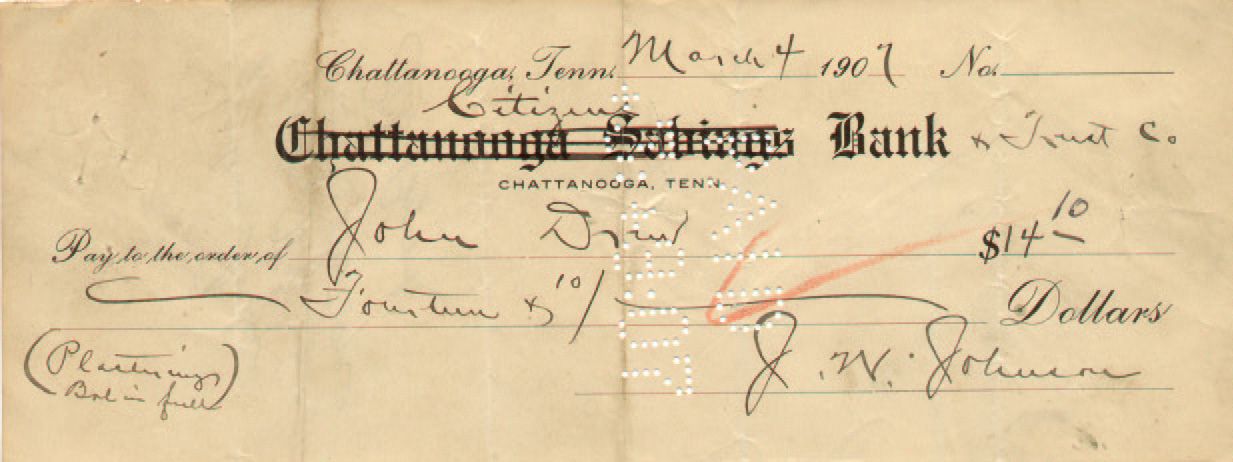 Chattanooga, Tenn. March 4 1907 No.
Citizens
Chattanooga Savings Bank & Trust Co
CHATTANOOGA, TENN.
Pay to the order of John Drew $14 10
Fourteen & 10/ Dollars
(Plasterings
Bal in full)
J. W. Johnson